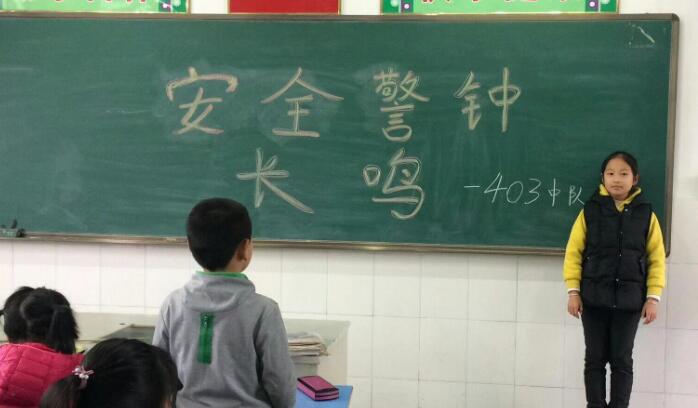 安全警钟
长鸣
—403中队